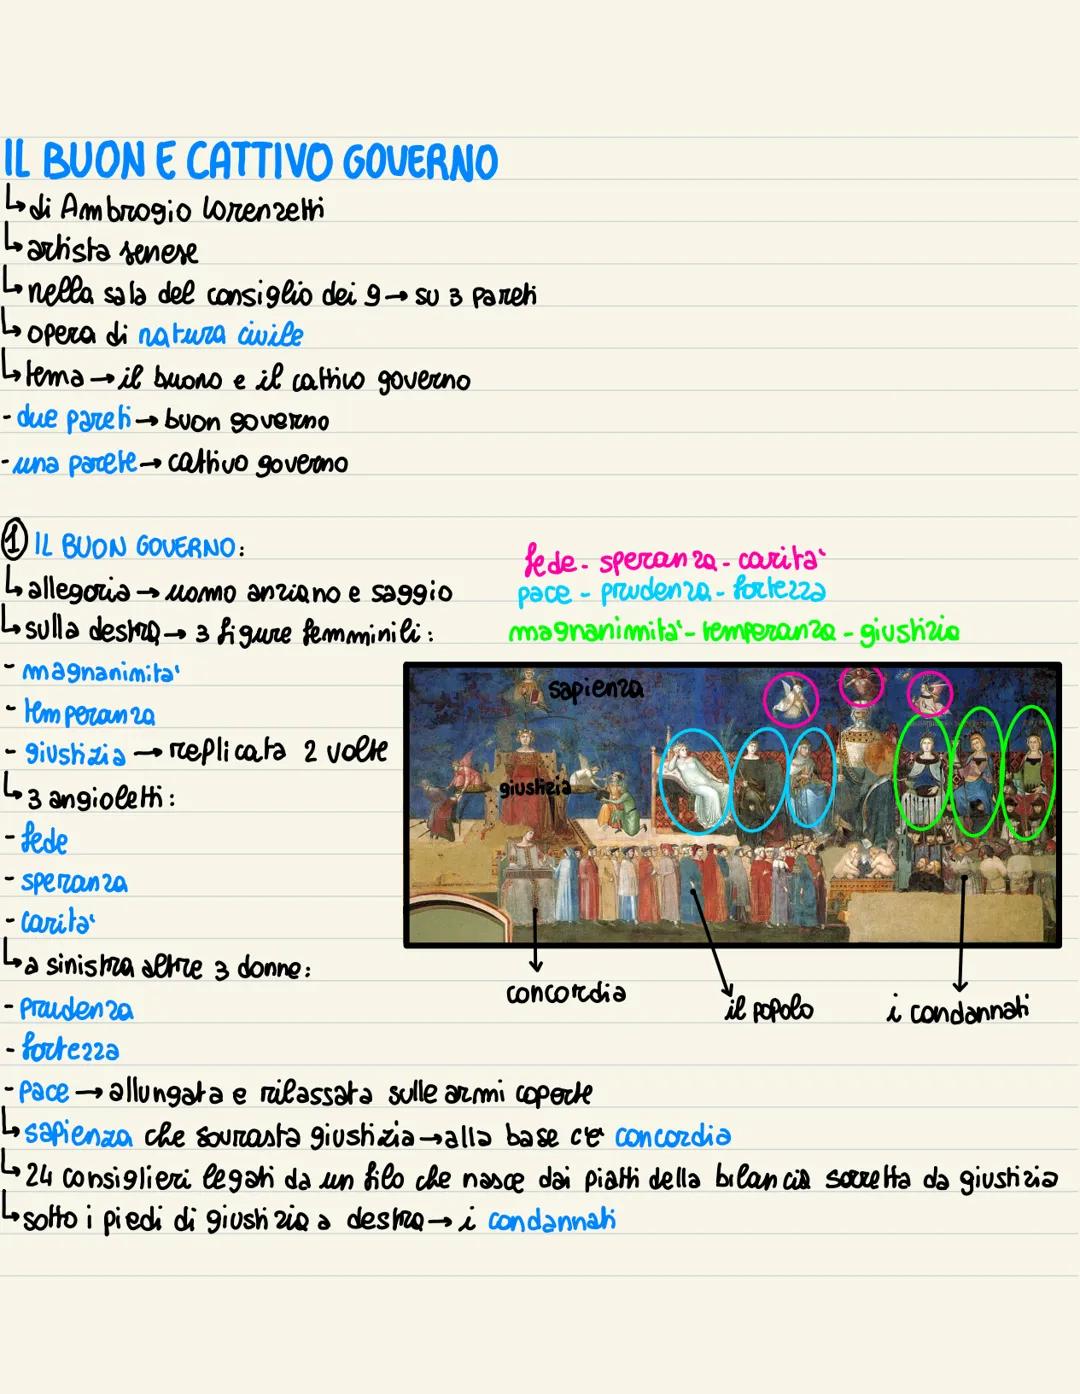 IL BUON E CATTIVO GOVERNO
↳di Ambrogio Lorenzetti
↳artista senese
↳nella sala del consiglio dei 9→ su 3 pareti
↳opera di natura civile
↳tema→il buono e il cattivo governo
- due pareti→buon governo
- una parete→cattivo governo
① IL BUON GOVERNO:
↳allegoria→uomo anziano e saggio
↳sulla destra→ 3 figure femminili:
- magnanimita'
- temperanza
- giustizia→replicata 2 volte
↳3 angioletti:
- fede
- speranza
- carita'
↳a sinistra altre 3 donne:
- prudenza
- fortezza
- pace→allungata e rilassata sulle armi coperte
↳sapienza che sovrasta giustizia→alla base c'è concordia
↳24 consiglieri legati da un filo che nasce dai piatti della bilancia sorretta da giustizia
↳sotto i piedi di giustizia a destra→ i condannati
fede - speranza - carita'
pace - prudenza - fortezza
magnanimita' - temperanza - giustizia
sapienza
giustizia
concordia
il popolo
i condannati